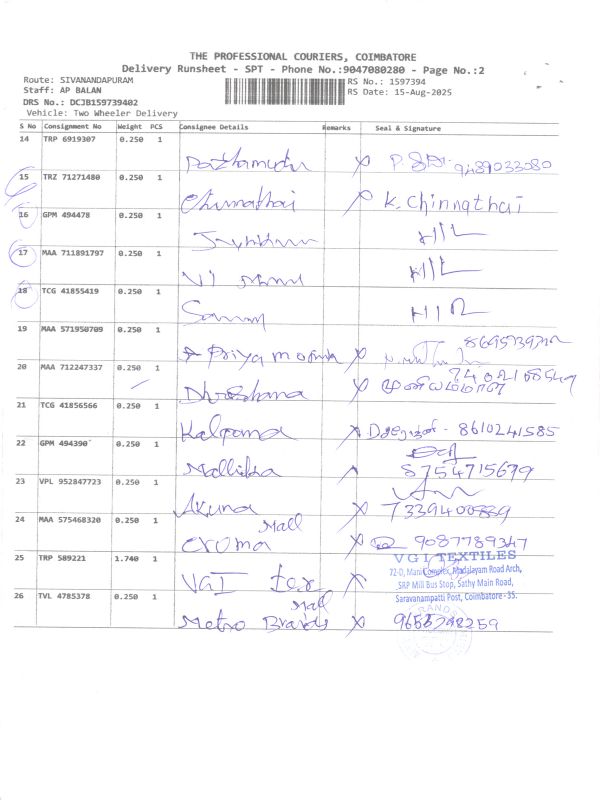 THE PROFESSIONAL COURIERS, COIMBATORE
Delivery Runsheet - SPT - Phone No.:9047080280 - Page No.:2
Route: SIVANANDAPURAM RS No.: 1597394
Staff: AP BALAN RS Date: 15-Aug-2025
DRS No.: DCJB159739402
Vehicle: Two Wheeler Delivery
S No Consignment No Weight PCS Consignee Details Remarks Seal & Signature
14 TRP 6919307 0.250 1
9489033080
15 TRZ 71271480 0.250 1
Chinnathai K. Chinnathai
16 GPM 494478 0.250 1
17 MAA 711891797 0.250 1
18 TCG 41855419 0.250 1
19 MAA 571950709 0.250 1
Priya
20 MAA 712247337 0.250 1
முனியம்மாள்
21 TCG 41856566 0.250 1
Kalpana 8610241585
22 GPM 494390 0.250 1
Mallika 8754715679
23 VPL 952847723 0.250 1
Akuna 7339400839
24 MAA 575468320 0.250 1
Mall
Croma 9087789347
25 TRP 589221 1.740 1
VGI TEXTILES
72-D, Mani Complex, Madalayam Road Arch,
SRP Mill Bus Stop, Sathy Main Road,
Saravanampatti Post, Coimbatore - 35.
VGI tex
26 TVL 4785378 0.250 1
Mall
Metro Brands